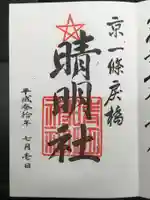 京一條戻橋
晴明社
平成叁拾年 七月壱日